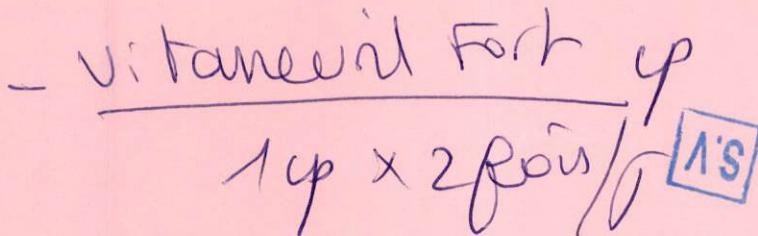 - Vitaneuril Fort cp
1 cp x 2 fois/j
S.V